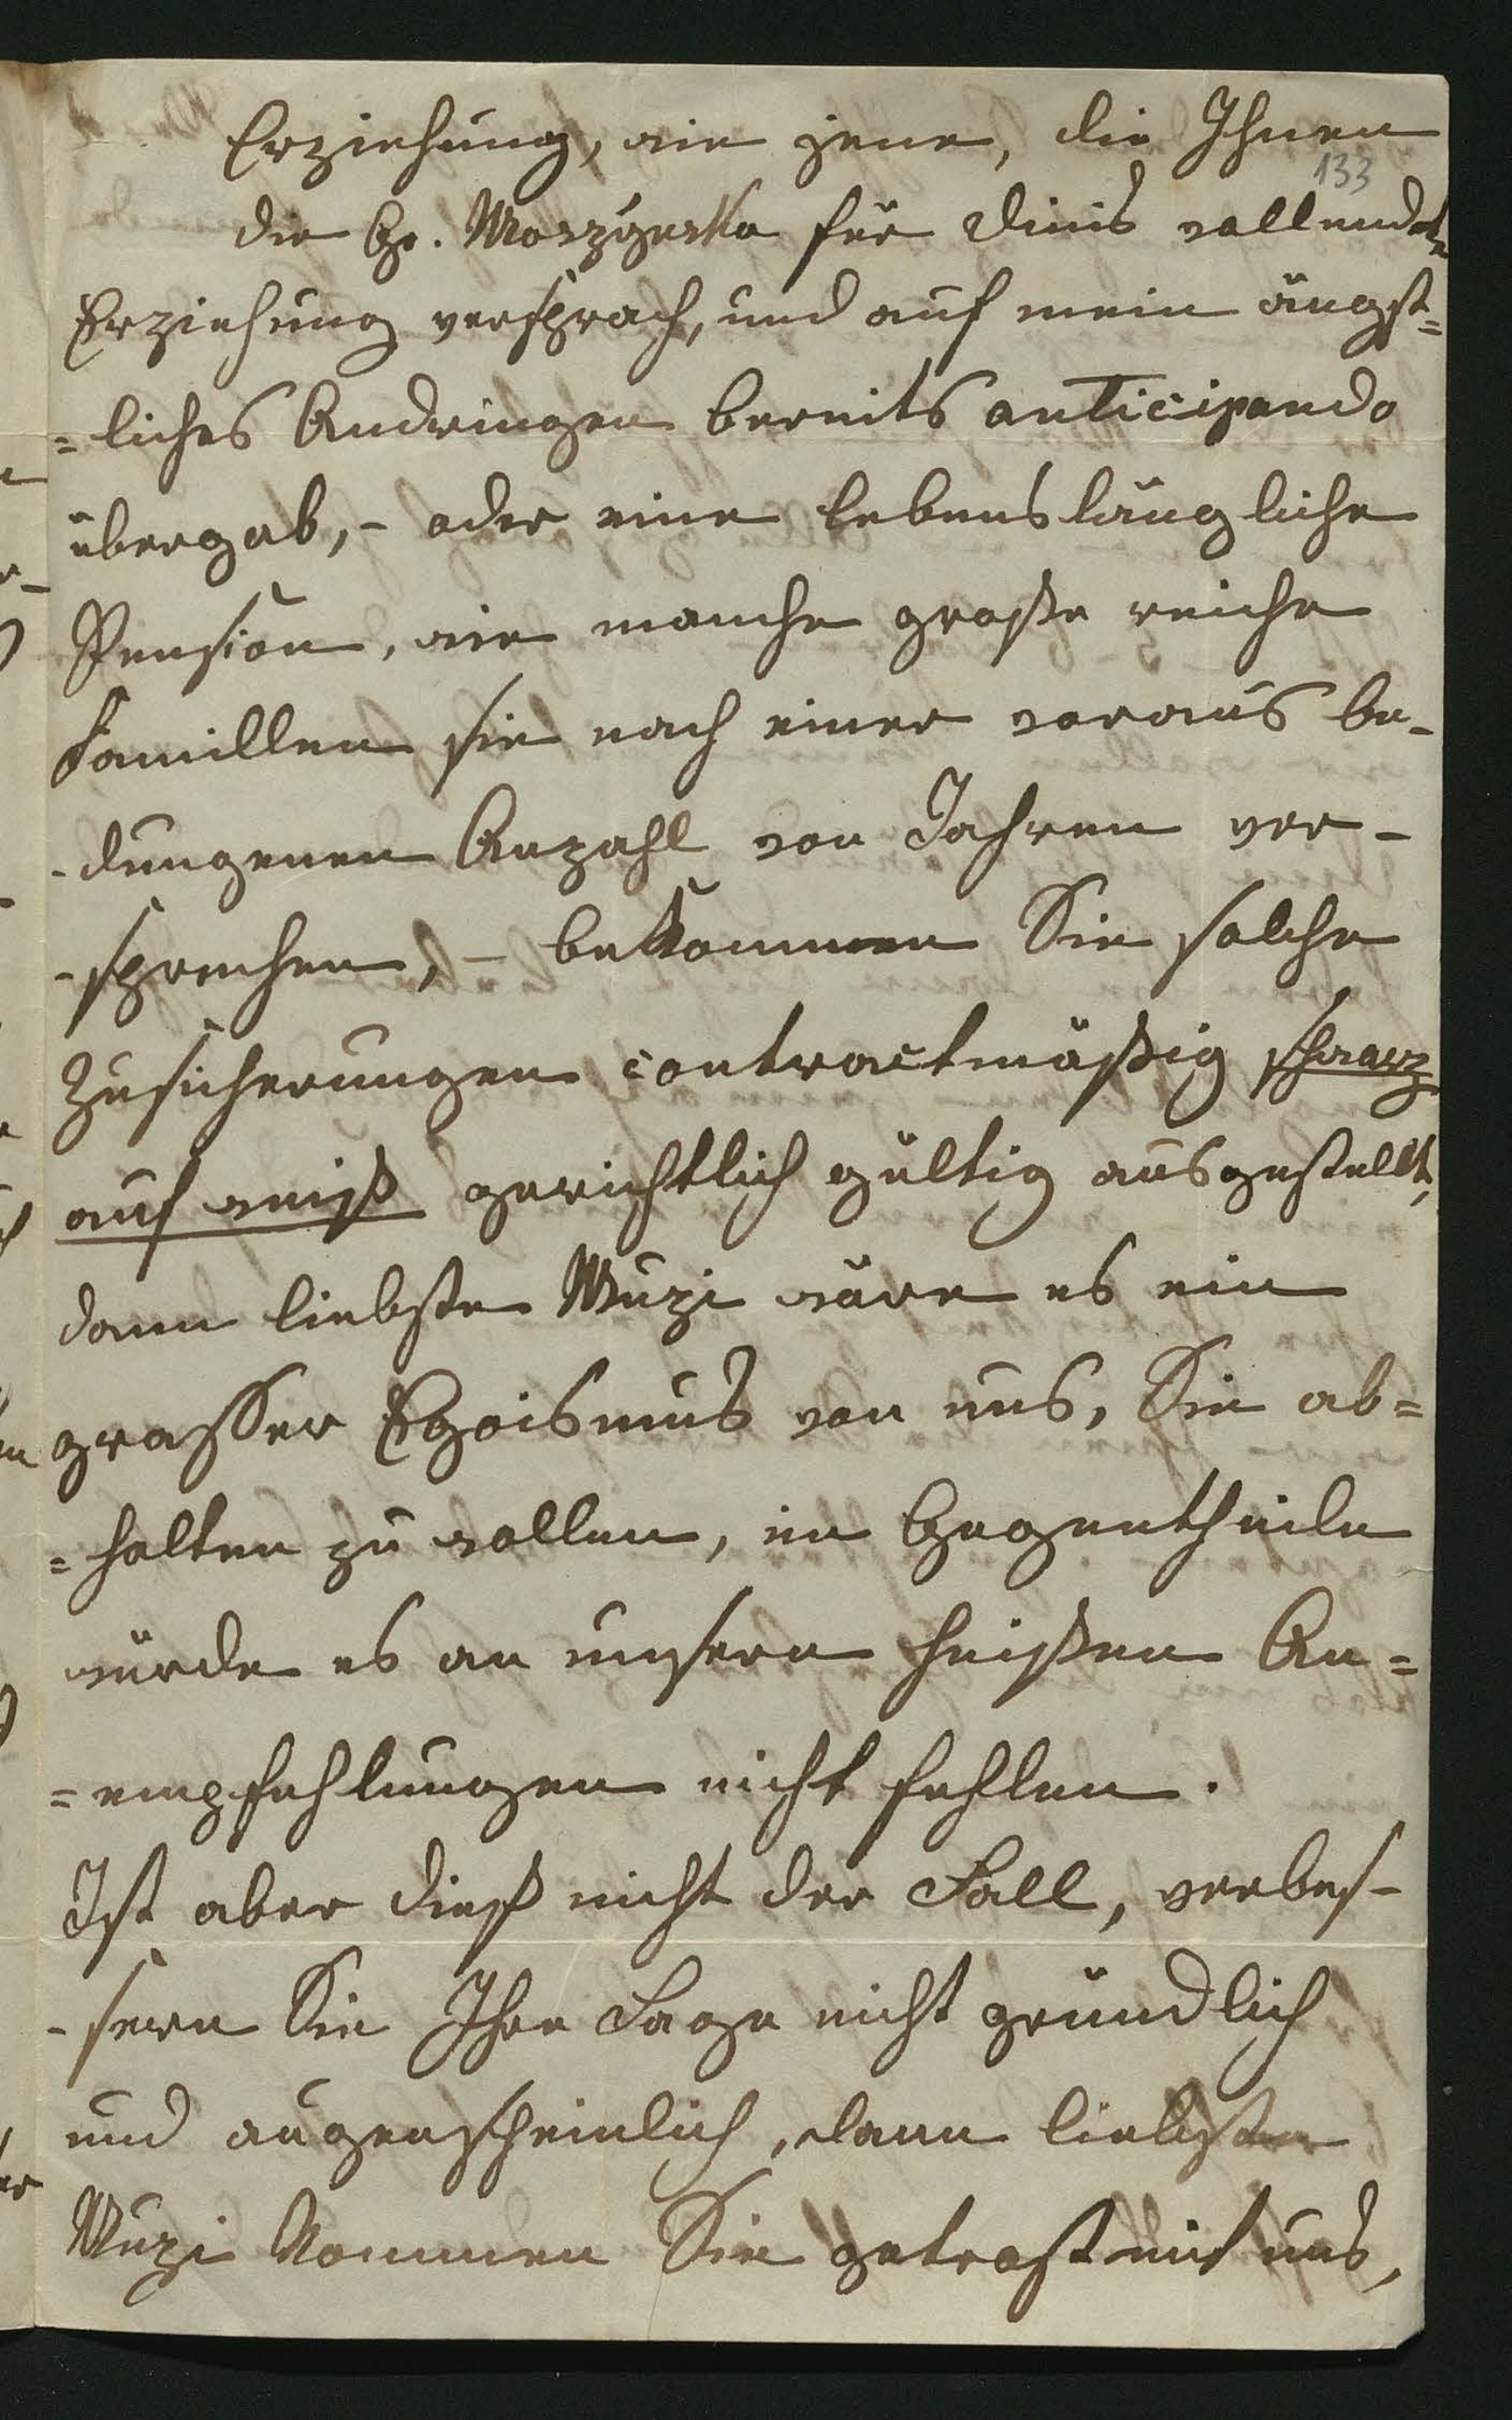 Erziehung, wie jene, die Ihnen
133
die Gr. Moszyńska für Sinis vollendete
Erziehung versprach, und auf mein ängst=
=liches Andringen bereits anticipando
übergab, - oder eine lebenslängliche
Pension, wie manche große reiche
Famillen sie nach einer voraus be-
-dungenen Anzahl von Jahren ver-
-sprechen, - bekommen Sie solche
Zusicherungen contractmäßig schwarz
auf weiß gerichtlich gültig ausgestellt,
dann liebste Muzi wäre es ein
grasser Egoismus von uns, Sie ab=
=halten zu wollen, im Gegentheile
würde es an unsern heißen An=
=empfehlungen nicht fehlen.
Ist aber dieß nicht der Fall, verbes-
-sern Sie Ihre Lage nicht gründlich
und augenscheinlich, dann liebste
Muzi kommen Sie getrost mit uns,